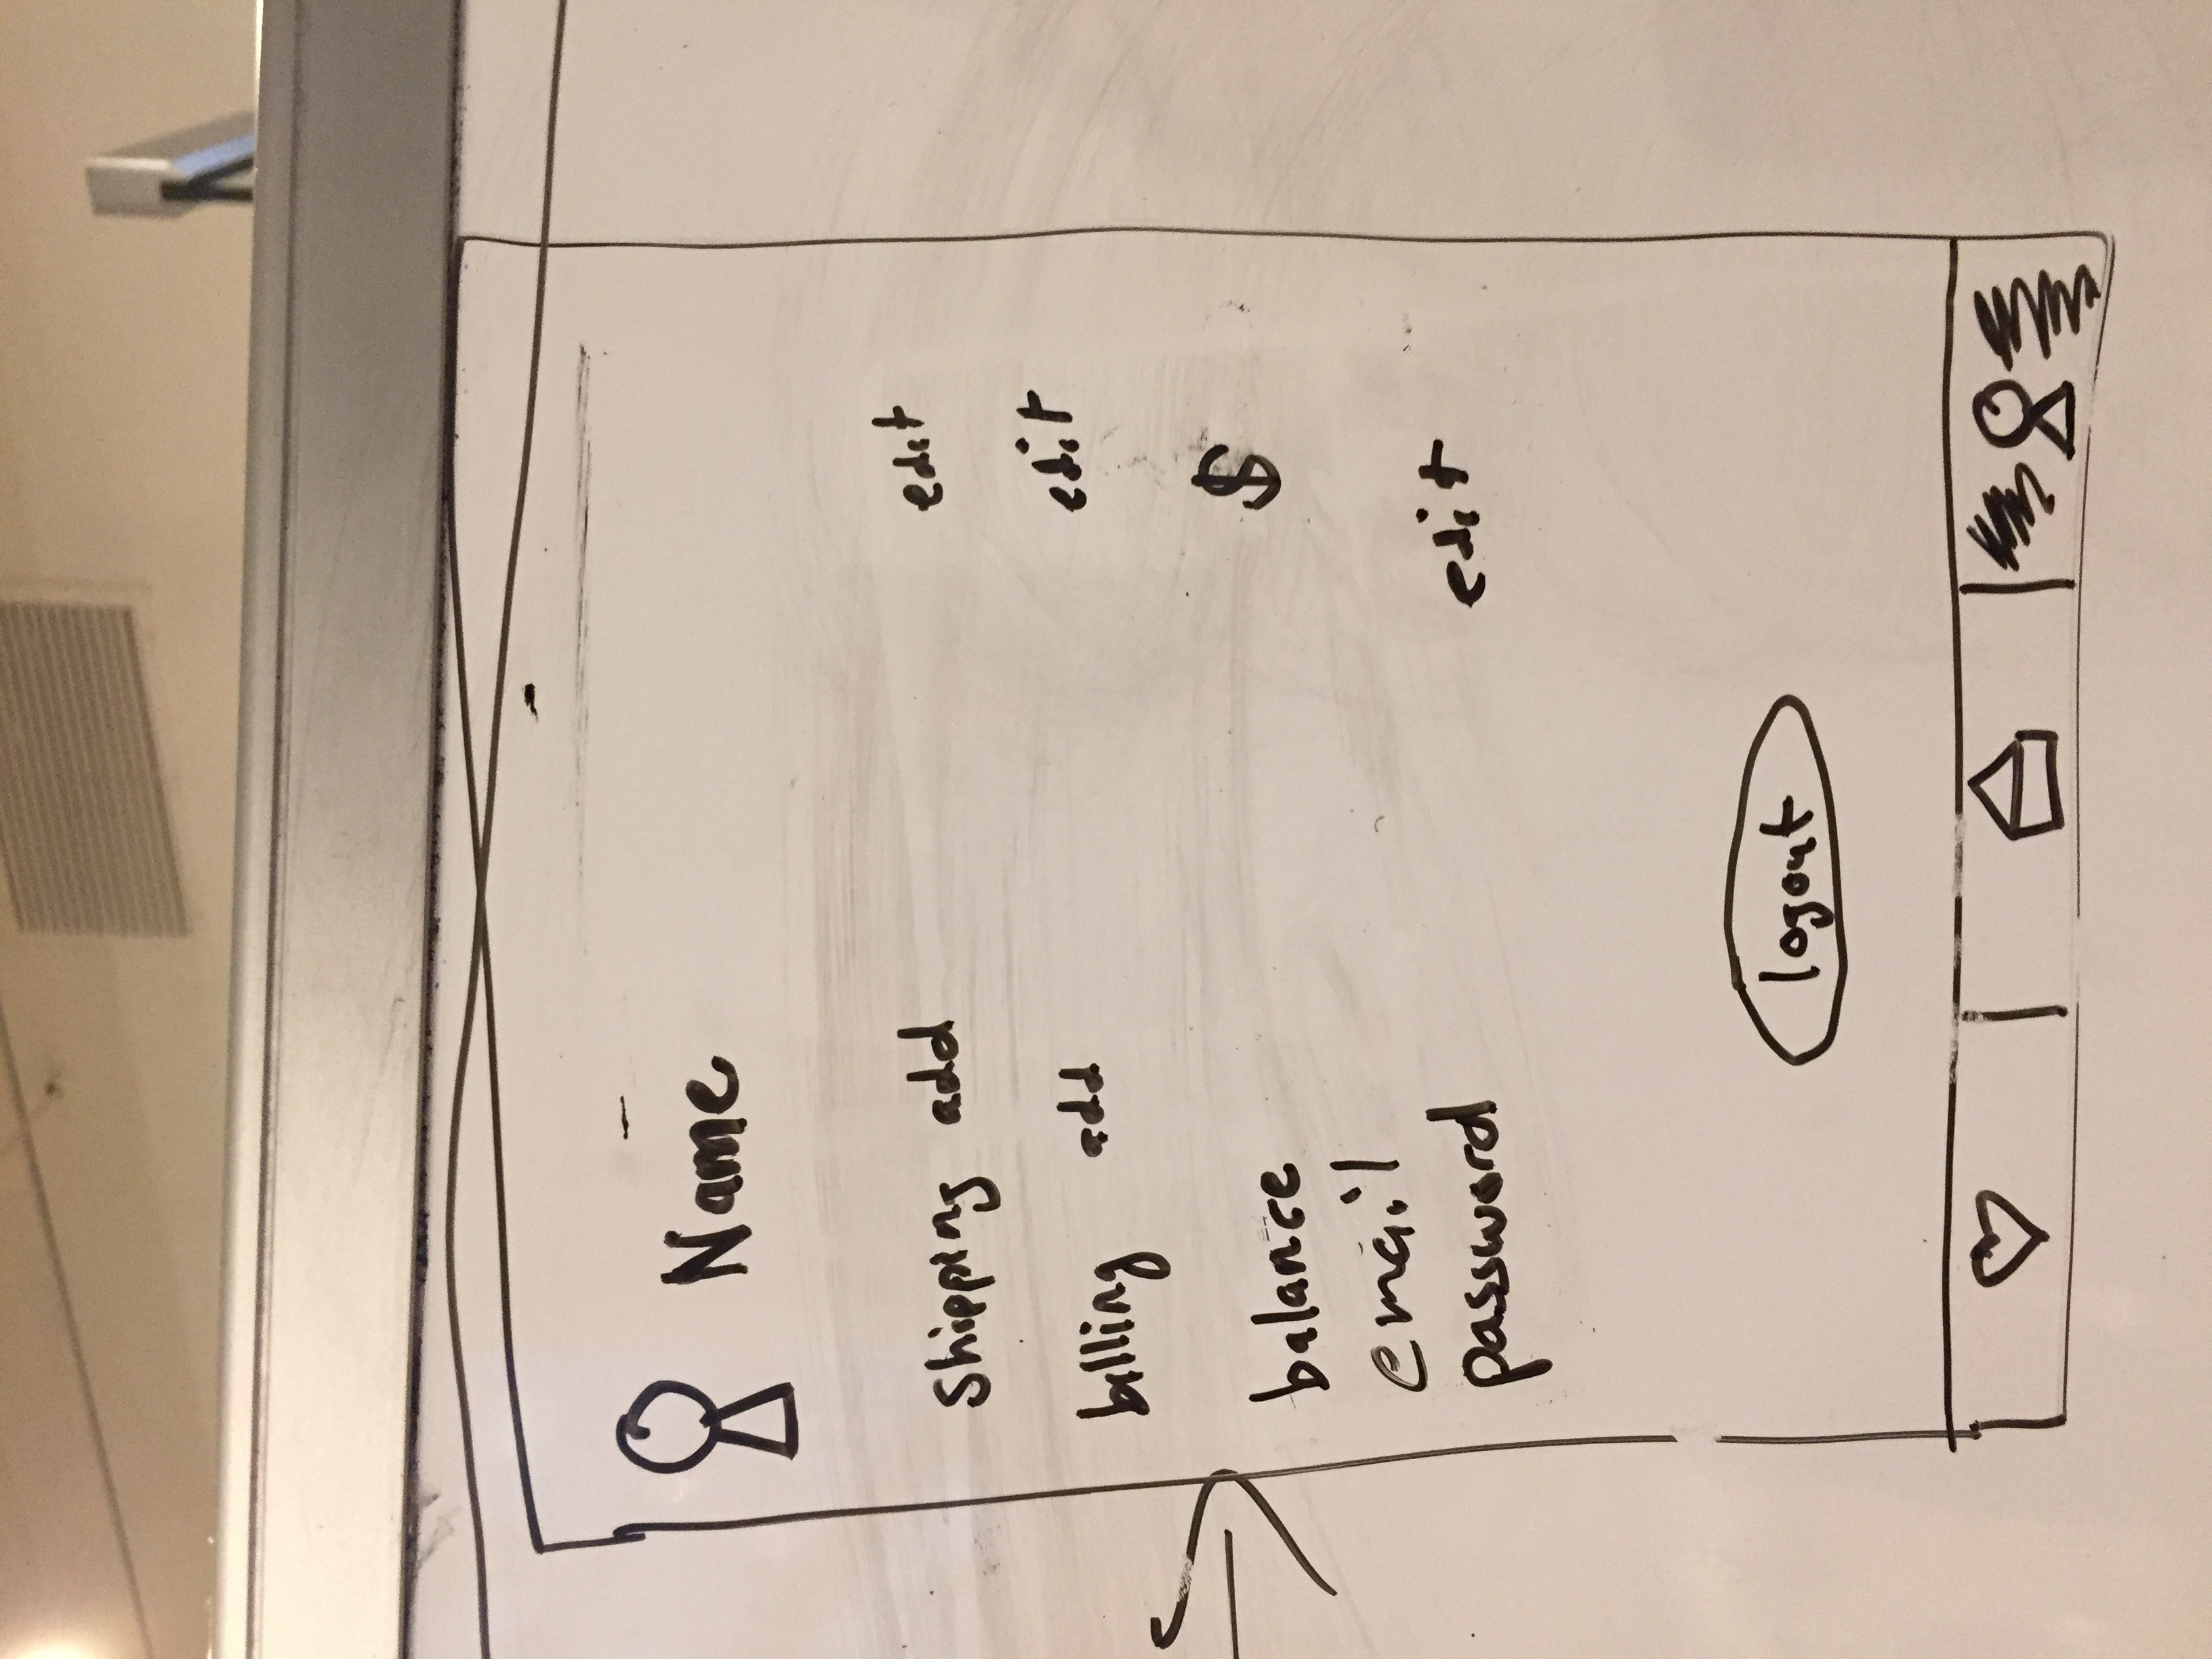 Name
shipping add edit
billing add edit
balance $
email
password edit
logout